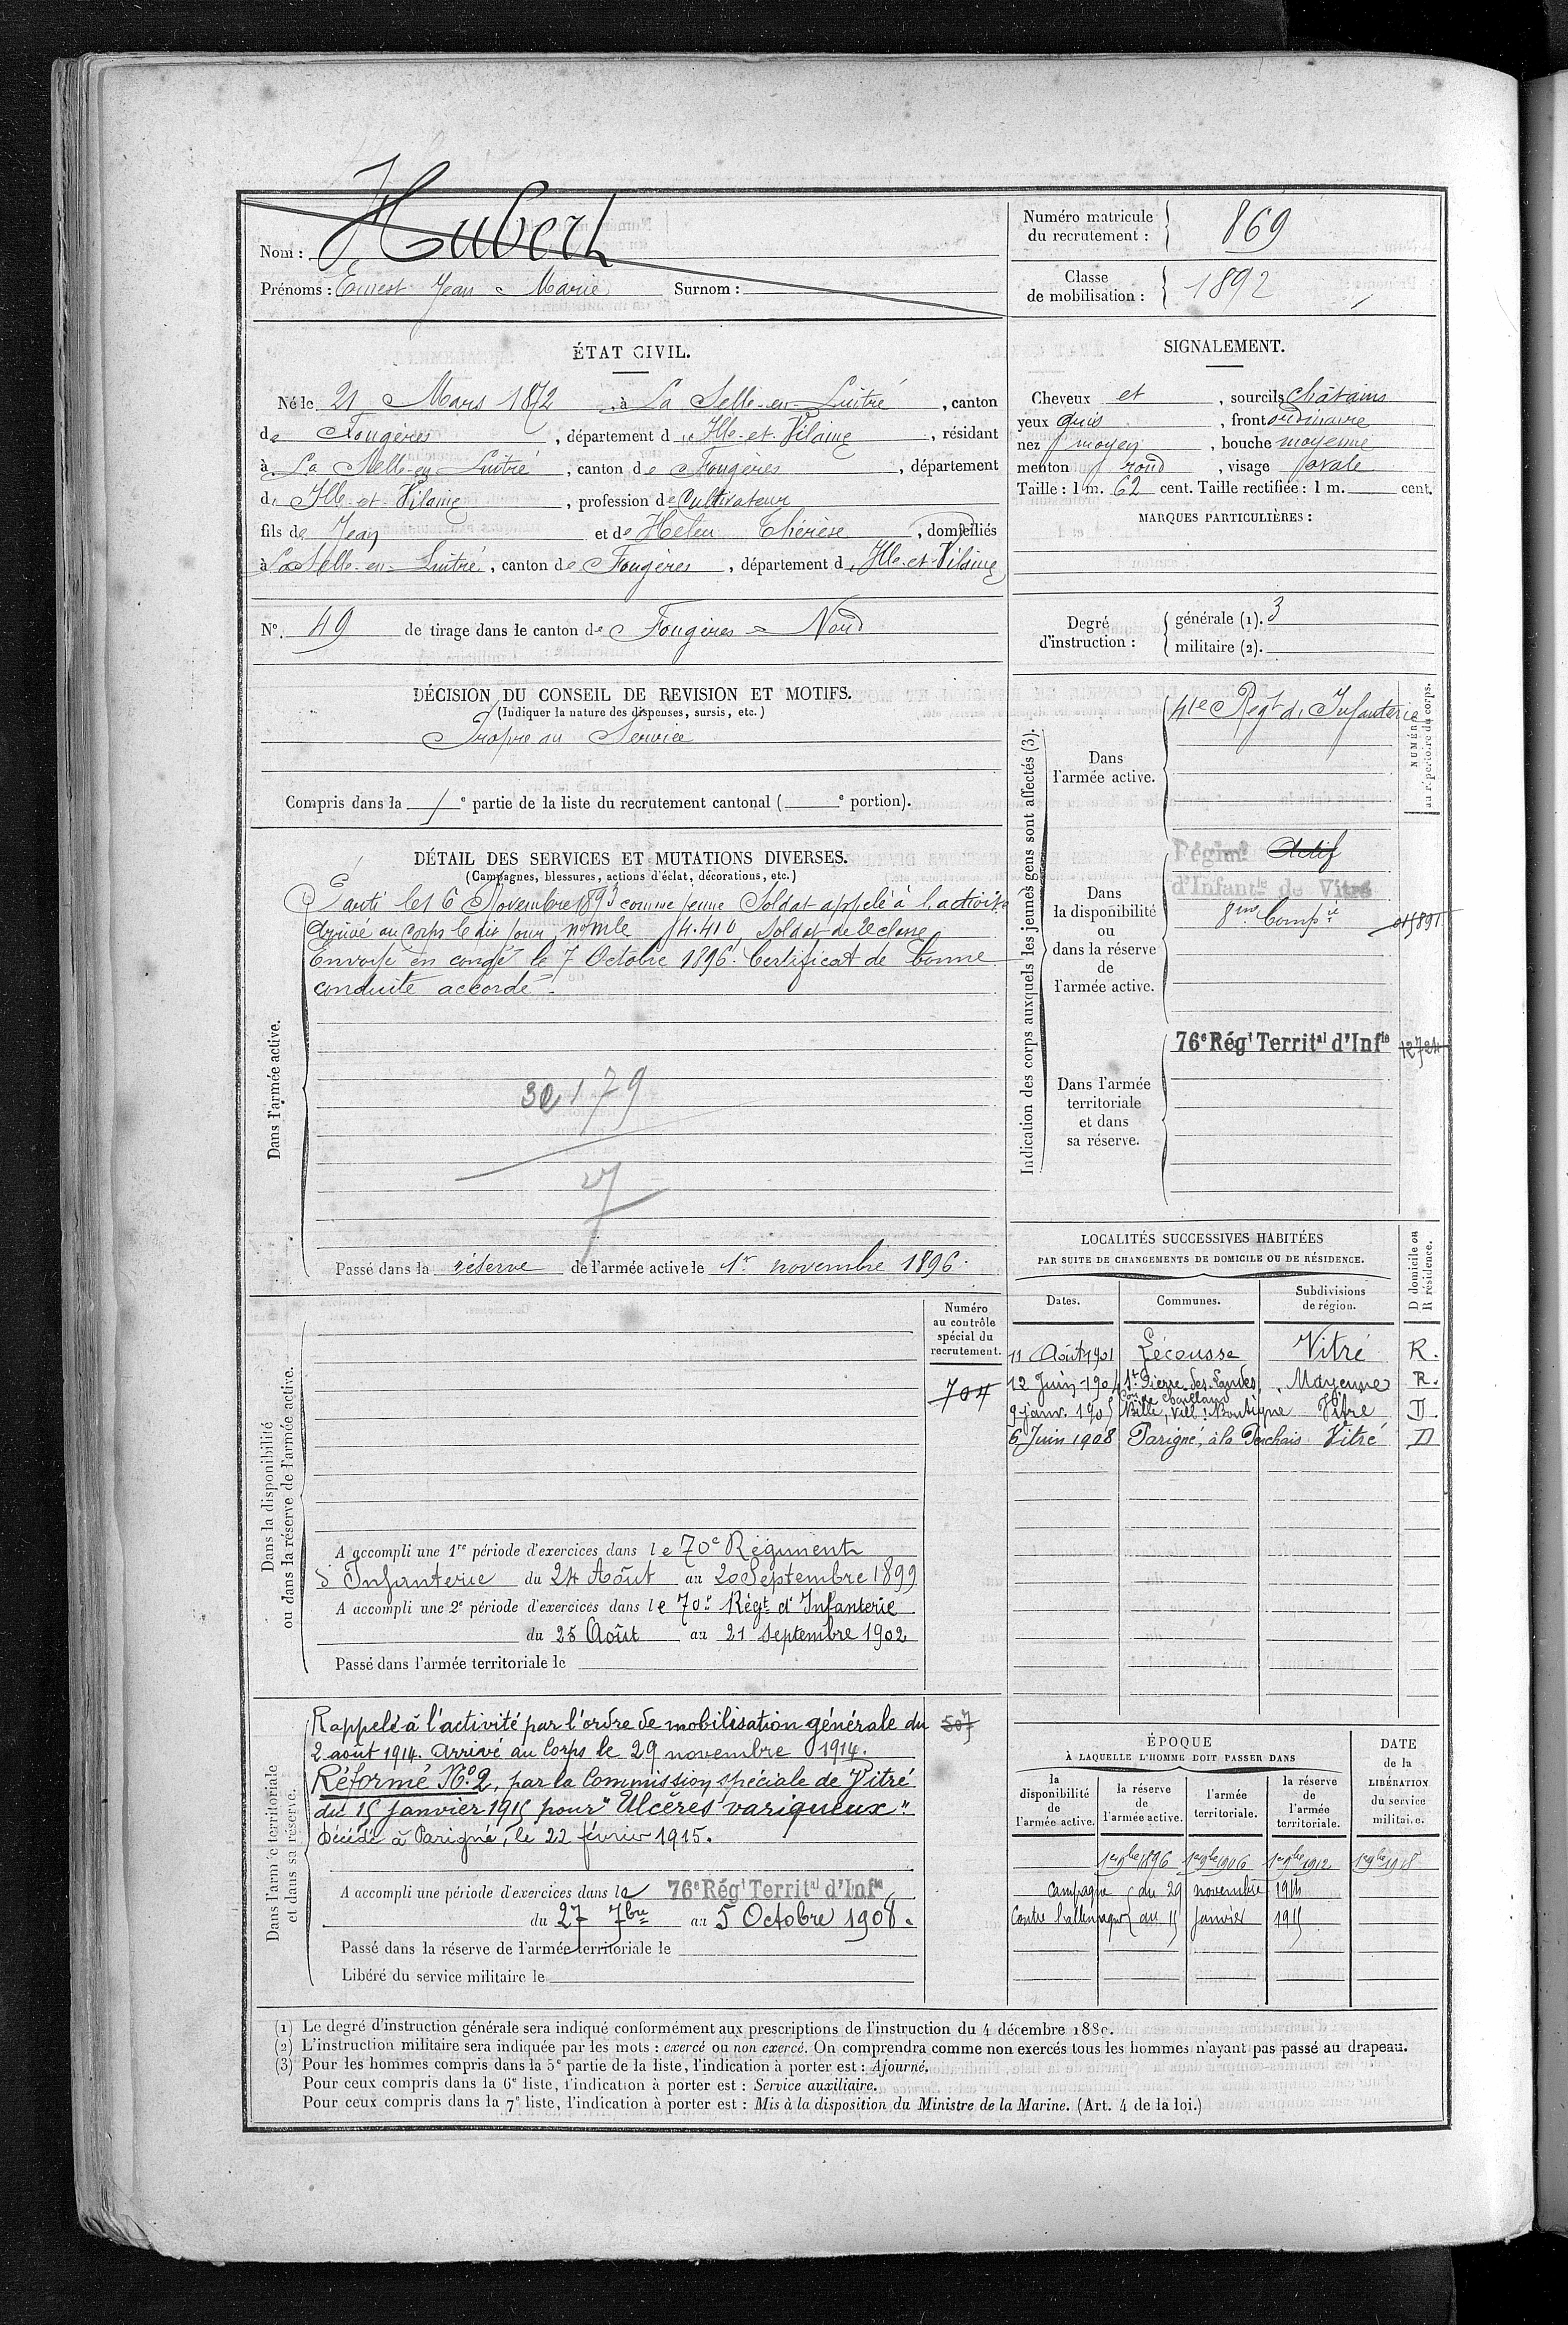 Nom : Hubert
Prénoms : Ernest Jean Marie Surnom :
Numéro matricule du recrutement : 869
Classe de mobilisation : 1892
ÉTAT CIVIL.
Né le 21 Mars 1872, à La Selle-en-Luitré, canton
de Fougères, département d'Ille-et-Vilaine, résidant
à La Selle-en-Luitré, canton de Fougères, département
d'Ille-et-Vilaine, profession de Cultivateur
fils de Jean et de Heleu Thérèse, domiciliés
à La Selle-en-Luitré, canton de Fougères, département d'Ille-et-Vilaine
No. 49 de tirage dans le canton de Fougères = Nord
DÉCISION DU CONSEIL DE REVISION ET MOTIFS.
(Indiquer la nature des dispenses, sursis, etc.)
Propre au Service
Compris dans la 1e partie de la liste du recrutement cantonal ( e portion).
DÉTAIL DES SERVICES ET MUTATIONS DIVERSES.
(Campagnes, blessures, actions d'éclat, décorations, etc.)
Dans l'armée active.
Parti le 16 Novembre 1893 comme jeune Soldat appelé à l'activité
Arrivé au Corps le dit jour, no mle 14.410, Soldat de 2e classe
Envoyé en congé le 7 Octobre 1896. Certificat de bonne
conduite accordé.
79
Passé dans la réserve de l'armée active le 1er novembre 1896.
Dans la disponibilité
ou dans la réserve de l'armée active.
Numéro
au contrôle
spécial du
recrutement.
704
A accompli une 1re période d'exercices dans le 70e Régiment
d'Infanterie du 24 Août au 20 Septembre 1899
A accompli une 2e période d'exercices dans le 70e Régt d'Infanterie
du 25 Août au 21 Septembre 1902
Passé dans l'armée territoriale le
Dans l'armée territoriale
et dans sa réserve.
Rappelé à l'activité par l'ordre de mobilisation générale du
507
2 août 1914. Arrivé au Corps le 29 novembre 1914.
Réformé No. 2, par la Commission spéciale de Vitré
du 15 janvier 1915 pour "Ulcères variqueux"
Décédé à Parigné, le 22 février 1915.
A accompli une période d'exercices dans le 76e Régt Territal d'Infie
du 27 7bre au 5 Octobre 1908.
Passé dans la réserve de l'armée territoriale le
Libéré du service militaire le
SIGNALEMENT.
Cheveux et, sourcils châtains
yeux gris, front ordinaire
nez moyen, bouche moyenne
menton rond, visage ovale
Taille : 1 m. 62 cent. Taille rectifiée : 1 m. cent.
MARQUES PARTICULIÈRES :
Degré d'instruction :
générale (1). 3
militaire (2).
Indication des corps auxquels les jeunes gens sont affectés (3).
NUMÉRO
au répertoire du corps.
Dans
l'armée active.
41e Régt d'Infanterie
Dans
la disponibilité
ou
dans la réserve
de
l'armée active.
Régimt Actif
d'Infantie de Vitré
8me Compie
Dans l'armée
territoriale
et dans
sa réserve.
76e Régt Territal d'Infie
12724
LOCALITÉS SUCCESSIVES HABITÉES
PAR SUITE DE CHANGEMENTS DE DOMICILE OU DE RÉSIDENCE.
Dates. Communes. Subdivisions de région. D domicile ou R résidence.
11 Août 1901 Lécousse Vitré R.
12 Juin 1904 St Pierre-des-Landes, Mayenne R.
9 janv. 1905 Billé, Vill: Boutigne Vitré D
6 Juin 1908 Parigné, à la Perchais Vitré D
ÉPOQUE
À LAQUELLE L'HOMME DOIT PASSER DANS
la disponibilité de l'armée active.
la réserve de l'armée active.
l'armée territoriale.
la réserve de l'armée territoriale.
DATE de la LIBÉRATION du service militaire.
1er 9bre 1896 1er 9bre 1906 1er 9bre 1912 1er 9bre 1918
Campagne du 29 novembre 1914
Contre l'allemagne au 15 Janvier 1915
(1) Le degré d'instruction générale sera indiqué conformément aux prescriptions de l'instruction du 4 décembre 1889.
(2) L'instruction militaire sera indiquée par les mots : exercé ou non exercé. On comprendra comme non exercés tous les hommes n'ayant pas passé au drapeau.
(3) Pour les hommes compris dans la 5e partie de la liste, l'indication à porter est : Ajourné.
Pour ceux compris dans la 6e liste, l'indication à porter est : Service auxiliaire.
Pour ceux compris dans la 7e liste, l'indication à porter est : Mis à la disposition du Ministre de la Marine. (Art. 4 de la loi.)